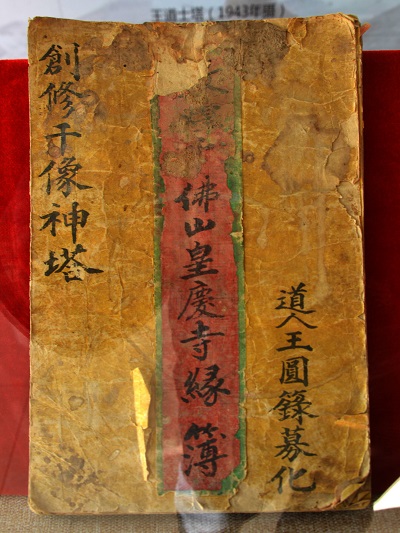 王道士塔（1943年摄）
道人王圓籙募化
佛山皇慶寺緣簿
創修千像神塔